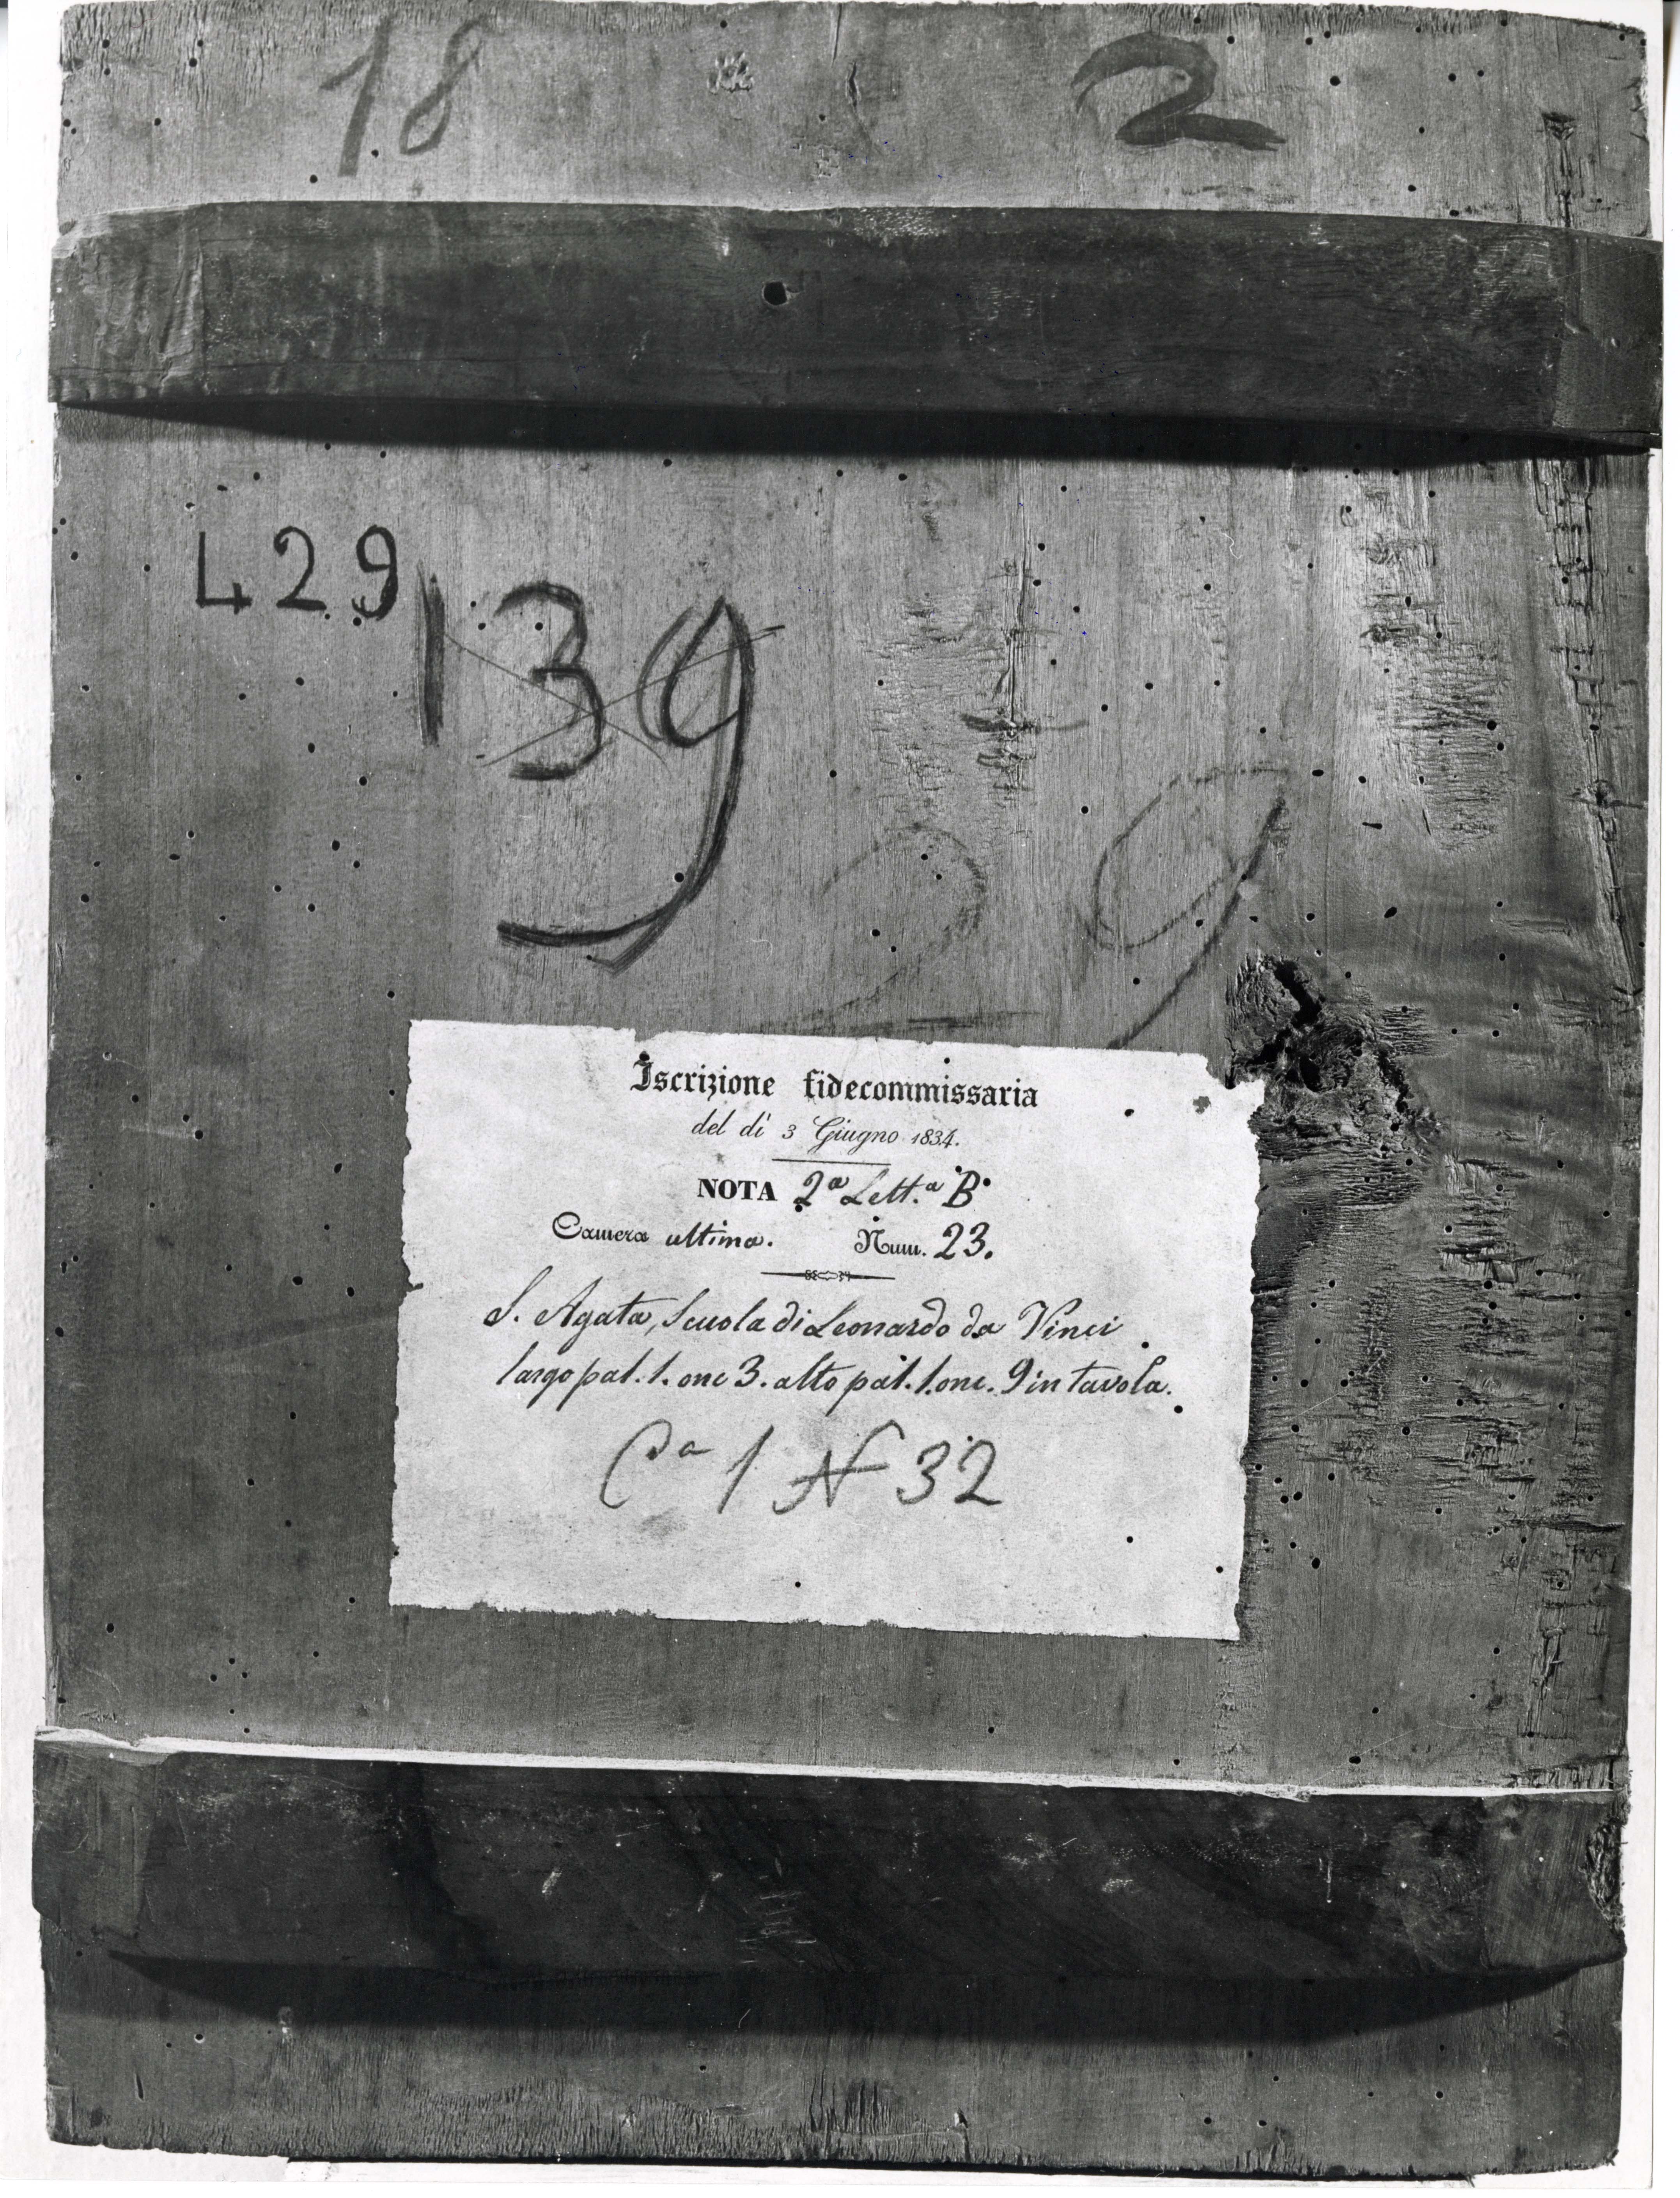 18 2
429
139
39
Iscrizione fidecommissaria
del dì 3 Giugno 1834.
NOTA 2ª Lett.ª B
Camera ultima. Num. 23.
S. Agata, Scuola di Leonardo da Vinci
largo pal. 1. onc 3. alto pal. 1. onc. 9 in tavola.
Cª 1 N 32